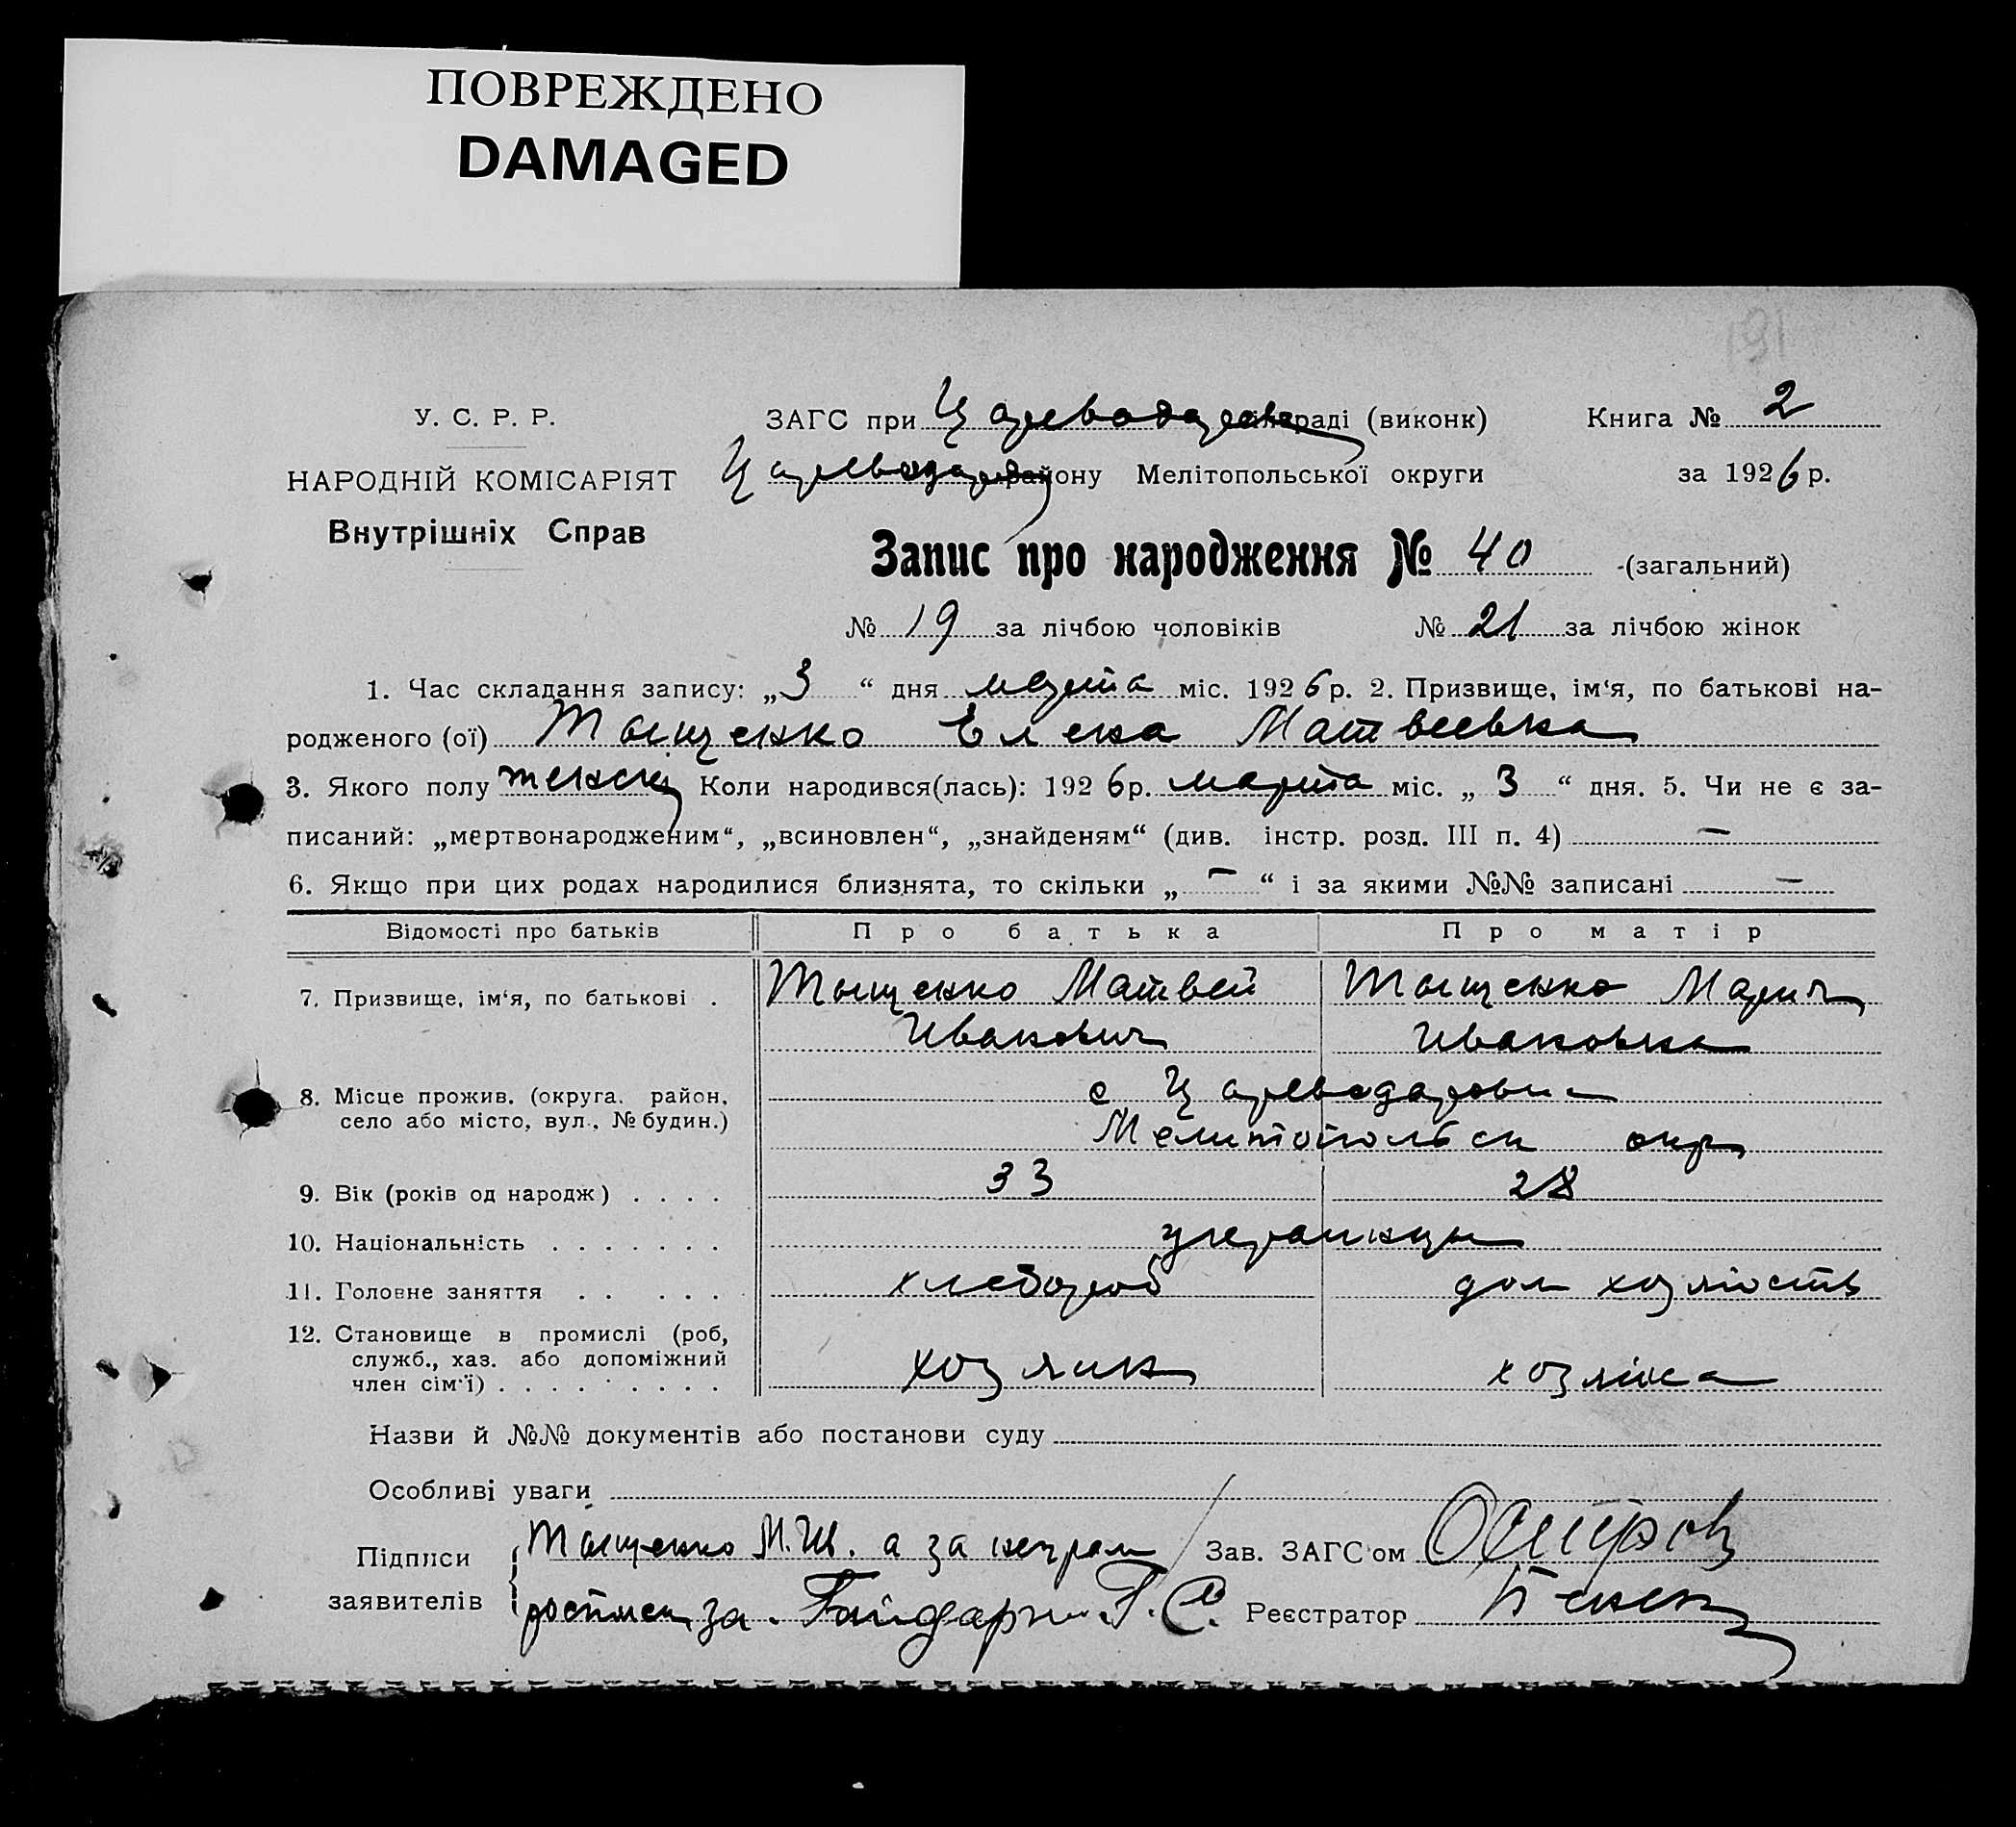 ПОВРЕЖДЕНО
DAMAGED
191
У. С. Р. Р.
НАРОДНІЙ КОМІСАРІЯТ
Внутрішніх Справ
ЗАГС при Царевода сільраді (виконк) Книга № 2
Цареводар району Мелітопольської округи за 1926 р.
Запис про народження № 40 (загальний)
№ 19 за лічбою чоловіків № 21 за лічбою жінок
1. Час складання запису: „3“ дня марта міс. 1926 р. 2. Призвище, ім‘я, по батькові на-
родженого (ої) Тыщенко Елена Матвеевна
3. Якого полу женск Коли народився(лась): 1926 р. марта міс. „3“ дня. 5. Чи не є за-
писаний: „мертвонародженим“, „всиновлен“, „знайденям“ (див. інстр. розд. III п. 4) —
6. Якщо при цих родах народилися близнята, то скільки „—“ і за якими №№ записані —
Відомості про батьків Про батька Про матір
7. Призвище, ім‘я, по батькові . Тыщенко Матвей Тыщенко Мария
Иванович Ивановна
8. Місце прожив. (округа, район, с Цареводаровка
село або місто, вул., № будин.) Мелитопольск окр
9. Вік (років од народж) . . . . 33 28
10. Національність . . . . . . . украинцы
11. Головне заняття . . . . . хлебороб дом хозяйств
12. Становище в промислі (роб,
служб., хаз. або допоміжний хозяин хозяйка
член сім‘ї) . . . . . . . . .
Назви й №№ документів або постанови суду
Особливі уваги
Підписи Тыщенко М.Ив. а за неграм Зав. ЗАГС‘ом
заявителів за Г. С. Реєстратор